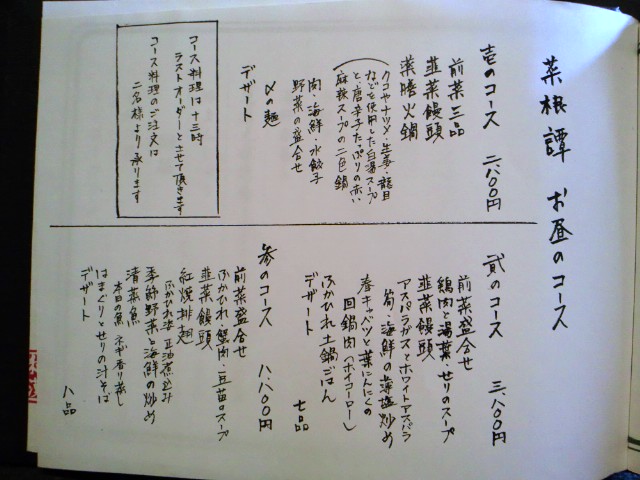 菜根譚 お昼のコース
壱のコース 二、八〇〇円
前菜三品
韮菜饅頭
薬膳火鍋
(クコやナツメ・生姜・龍眼
などを使用した白湯スープ
と、唐辛子たっぷりの赤い
麻辣スープの二色鍋)
肉・海鮮・水餃子
野菜の盛合せ
〆の麺
デザート
コース料理は十三時
ラストオーダーとさせて頂きます
コース料理のご注文は
二名様より承ります
弐のコース 三、八〇〇円
前菜盛合せ
鶏肉と湯葉・せりのスープ
韮菜饅頭
アスパラガスとホワイトアスパラ
筍・海鮮の藻塩炒め
春キャベツと葉にんにくの
回鍋肉(ホイコーロー)
ふかひれ土鍋ごはん
デザート
七品
参のコース 八、八〇〇円
前菜盛合せ
ふかひれ・蟹肉・豆苗のスープ
韮菜饅頭
紅焼排翅
ふかひれ姿 正油煮込み
季節野菜と海鮮の炒め
清蒸魚
本日の魚 ネギ香り蒸し
はまぐりとせりの汁そば
デザート
八品